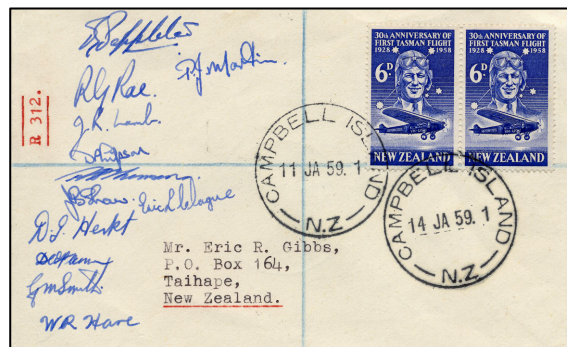 R 312.
P J Martin
R G Rae.
J. R. Lamb.
J B Shaw. Eric R Clague
D. S. Herkt
G M Smith.
W R Hare
30th ANNIVERSARY OF
FIRST TASMAN FLIGHT
1928 1958
6D
NEW ZEALAND
30th ANNIVERSARY OF
FIRST TASMAN FLIGHT
1928 1958
6D
NEW ZEALAND
CAMPBELL ISLAND
11 JA 59. 1
N.Z
CAMPBELL ISLAND
14 JA 59. 1
N.Z
Mr. Eric R. Gibbs,
P.O. Box 164,
Taihape,
New Zealand.